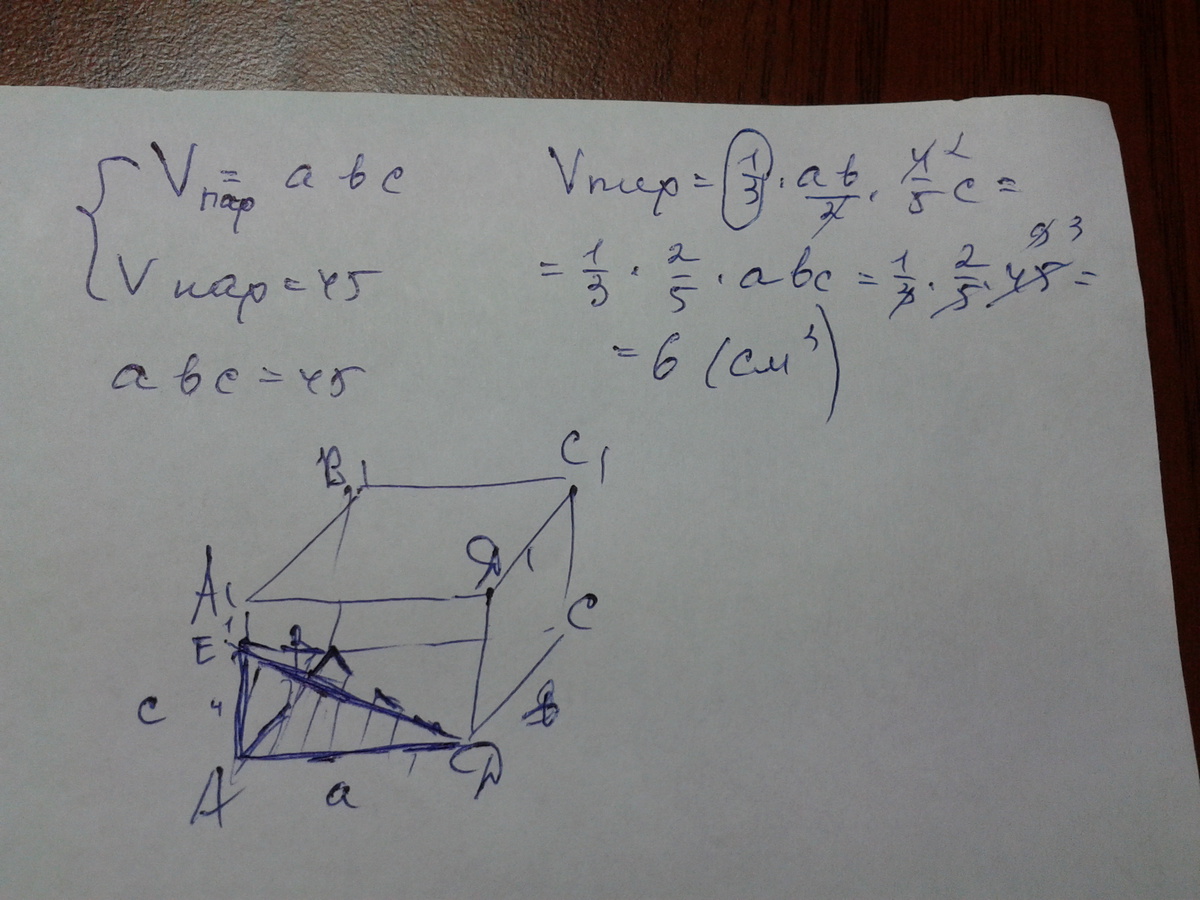 Vпар = a b c
V пар = 45
a b c = 45
Vпир = 1/3 · ab/2 · 4/5 c =
= 1/3 · 2/5 · abc = 1/3 · 2/5 · 45 =
= 6 (см³)
B1
C1
A1
Д1
E
1
C
c
4
в
A
a
Д